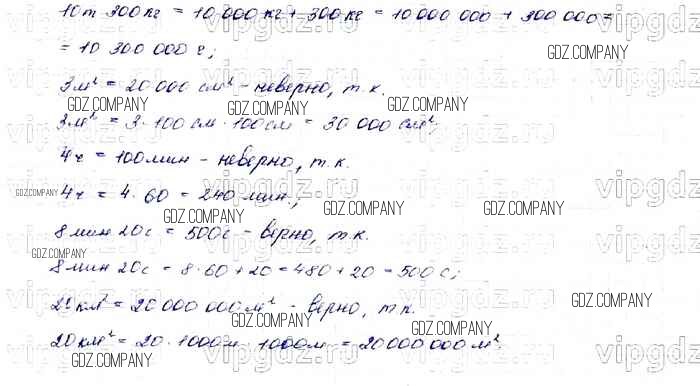 10т 300кг = 10 000 кг + 300 кг = 10 000 000 + 300 000 =
= 10 300 000 г;
3м² = 20 000 см² - неверно, т.к.
3м² = 3 · 100 см · 100 см = 30 000 см²;
4ч = 100 мин - неверно, т.к.
4ч = 4 · 60 = 240 мин;
8 мин 20с = 500с - верно, т.к.
8 мин 20с = 8 · 60 + 20 = 480 + 20 = 500 с;
20 км² = 20 000 000 м² - верно, т.к.
20 км² = 20 · 1000м · 1000м = 20 000 000 м².
GDZ.COMPANY
GDZ.COMPANY
GDZ.COMPANY
GDZ.COMPANY
GDZ.COMPANY
GDZ.COMPANY
GDZ.COMPANY
GDZ.COMPANY
GDZ.COMPANY
GDZ.COMPANY
GDZ.COMPANY
GDZ.COMPANY
GDZ.COMPANY
vipgdz.ru
vipgdz.ru
vipgdz.ru
vipgdz.ru